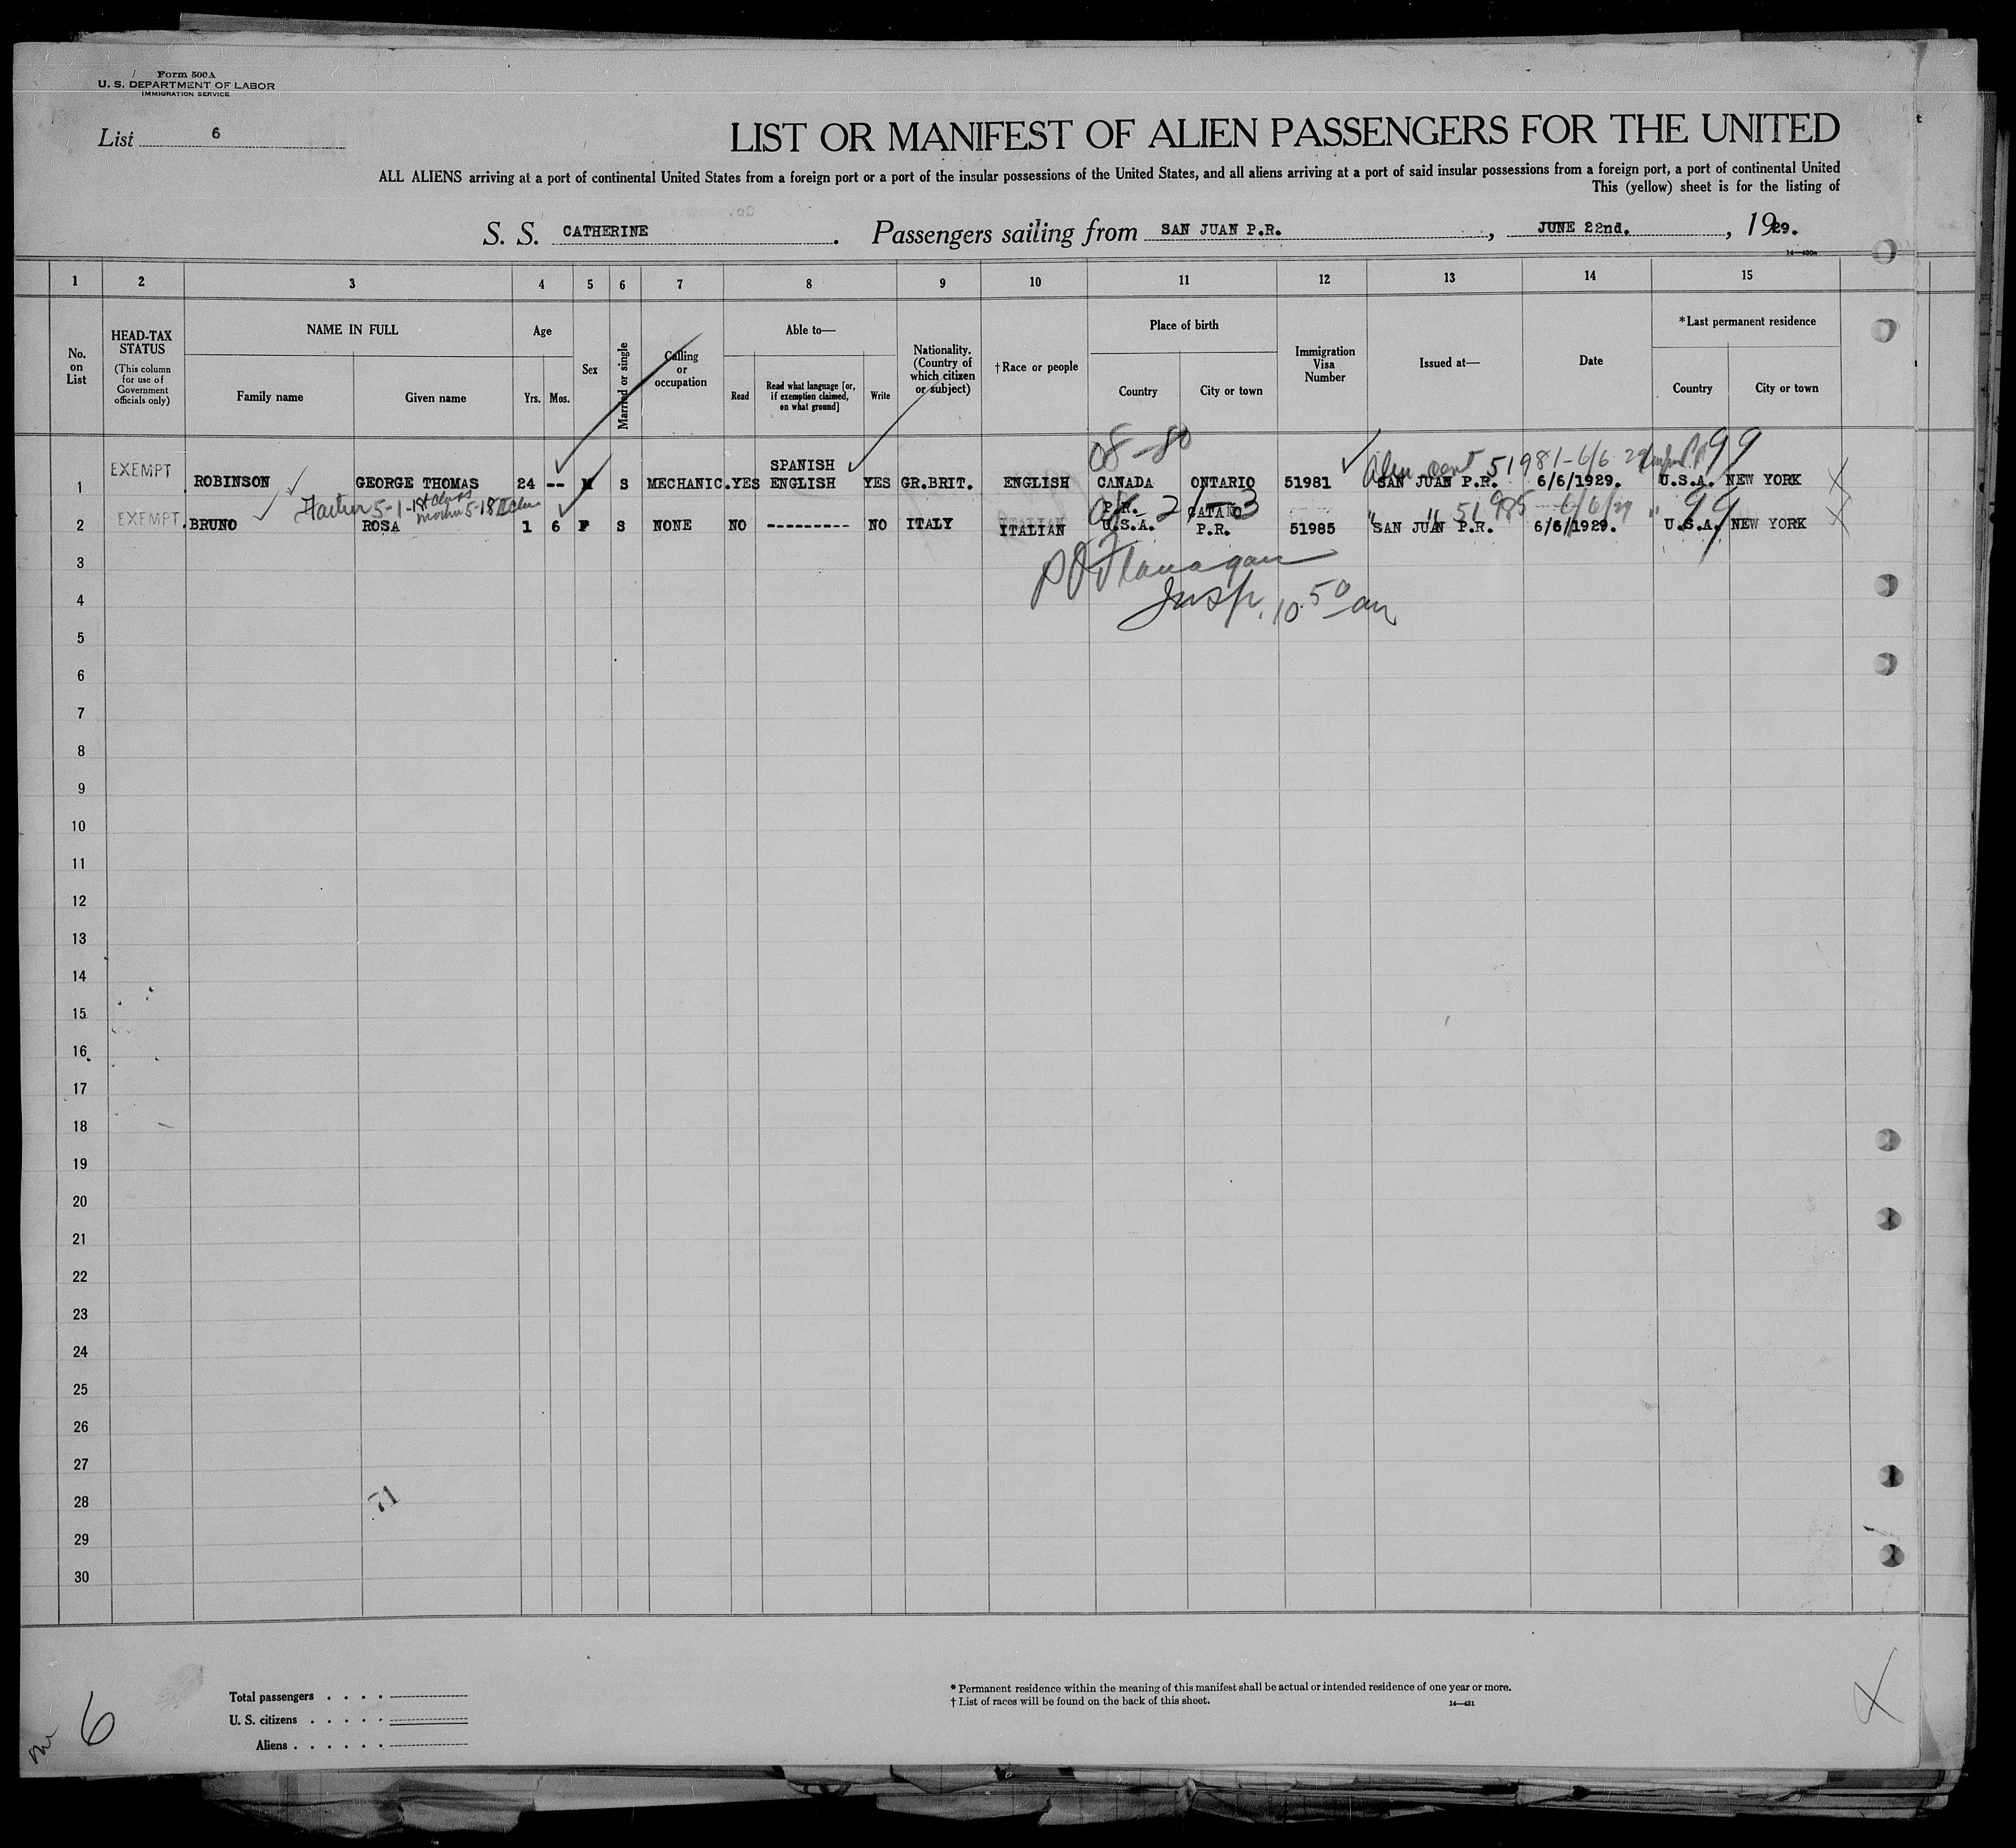 Form 500A
U. S. DEPARTMENT OF LABOR
IMMIGRATION SERVICE
List 6
LIST OR MANIFEST OF ALIEN PASSENGERS FOR THE UNITED
ALL ALIENS arriving at a port of continental United States from a foreign port or a port of the insular possessions of the United States, and all aliens arriving at a port of said insular possessions from a foreign port, a port of continental United
This (yellow) sheet is for the listing of
S. S. CATHERINE. Passengers sailing from SAN JUAN P.R., JUNE 22nd., 1929.
14-430a
1 2 3 4 5 6 7 8 9 10 11 12 13 14 15
No. on List
HEAD-TAX STATUS
(This column for use of Government officials only)
NAME IN FULL
Family name Given name
Age
Yrs. Mos.
Sex
Married or single
Calling or occupation
Able to—
Read
Read what language [or, if exemption claimed, on what ground]
Write
Nationality. (Country of which citizen or subject)
†Race or people
Place of birth
Country City or town
Immigration Visa Number
Issued at—
Date
*Last permanent residence
Country City or town
08-80
51981-6/6 29 99
1 EXEMPT ROBINSON GEORGE THOMAS 24 -- M S MECHANIC. YES SPANISH ENGLISH YES GR.BRIT. ENGLISH CANADA ONTARIO 51981 SAN JUAN P.R. 6/6/1929. U.S.A. NEW YORK
Father 5-1-1st class
Mother 5-18
" " 51985 6/6/29 " 99
2 EXEMPT BRUNO ROSA 1 6 F S NONE NO --------- NO ITALY ITALIAN P.R. U.S.A. CATANO P.R. 51985 SAN JUAN P.R. 6/6/1929. U.S.A. NEW YORK
3
Flanagan
4
Insp. 10.50 am
5
6
7
8
9
10
11
12
13
14
15
16
17
18
19
20
21
22
23
24
25
26
27
28
71
29
30
Total passengers . . . .
U. S. citizens . . . . .
Aliens . . . . . .
* Permanent residence within the meaning of this manifest shall be actual or intended residence of one year or more.
† List of races will be found on the back of this sheet. 14-431
6